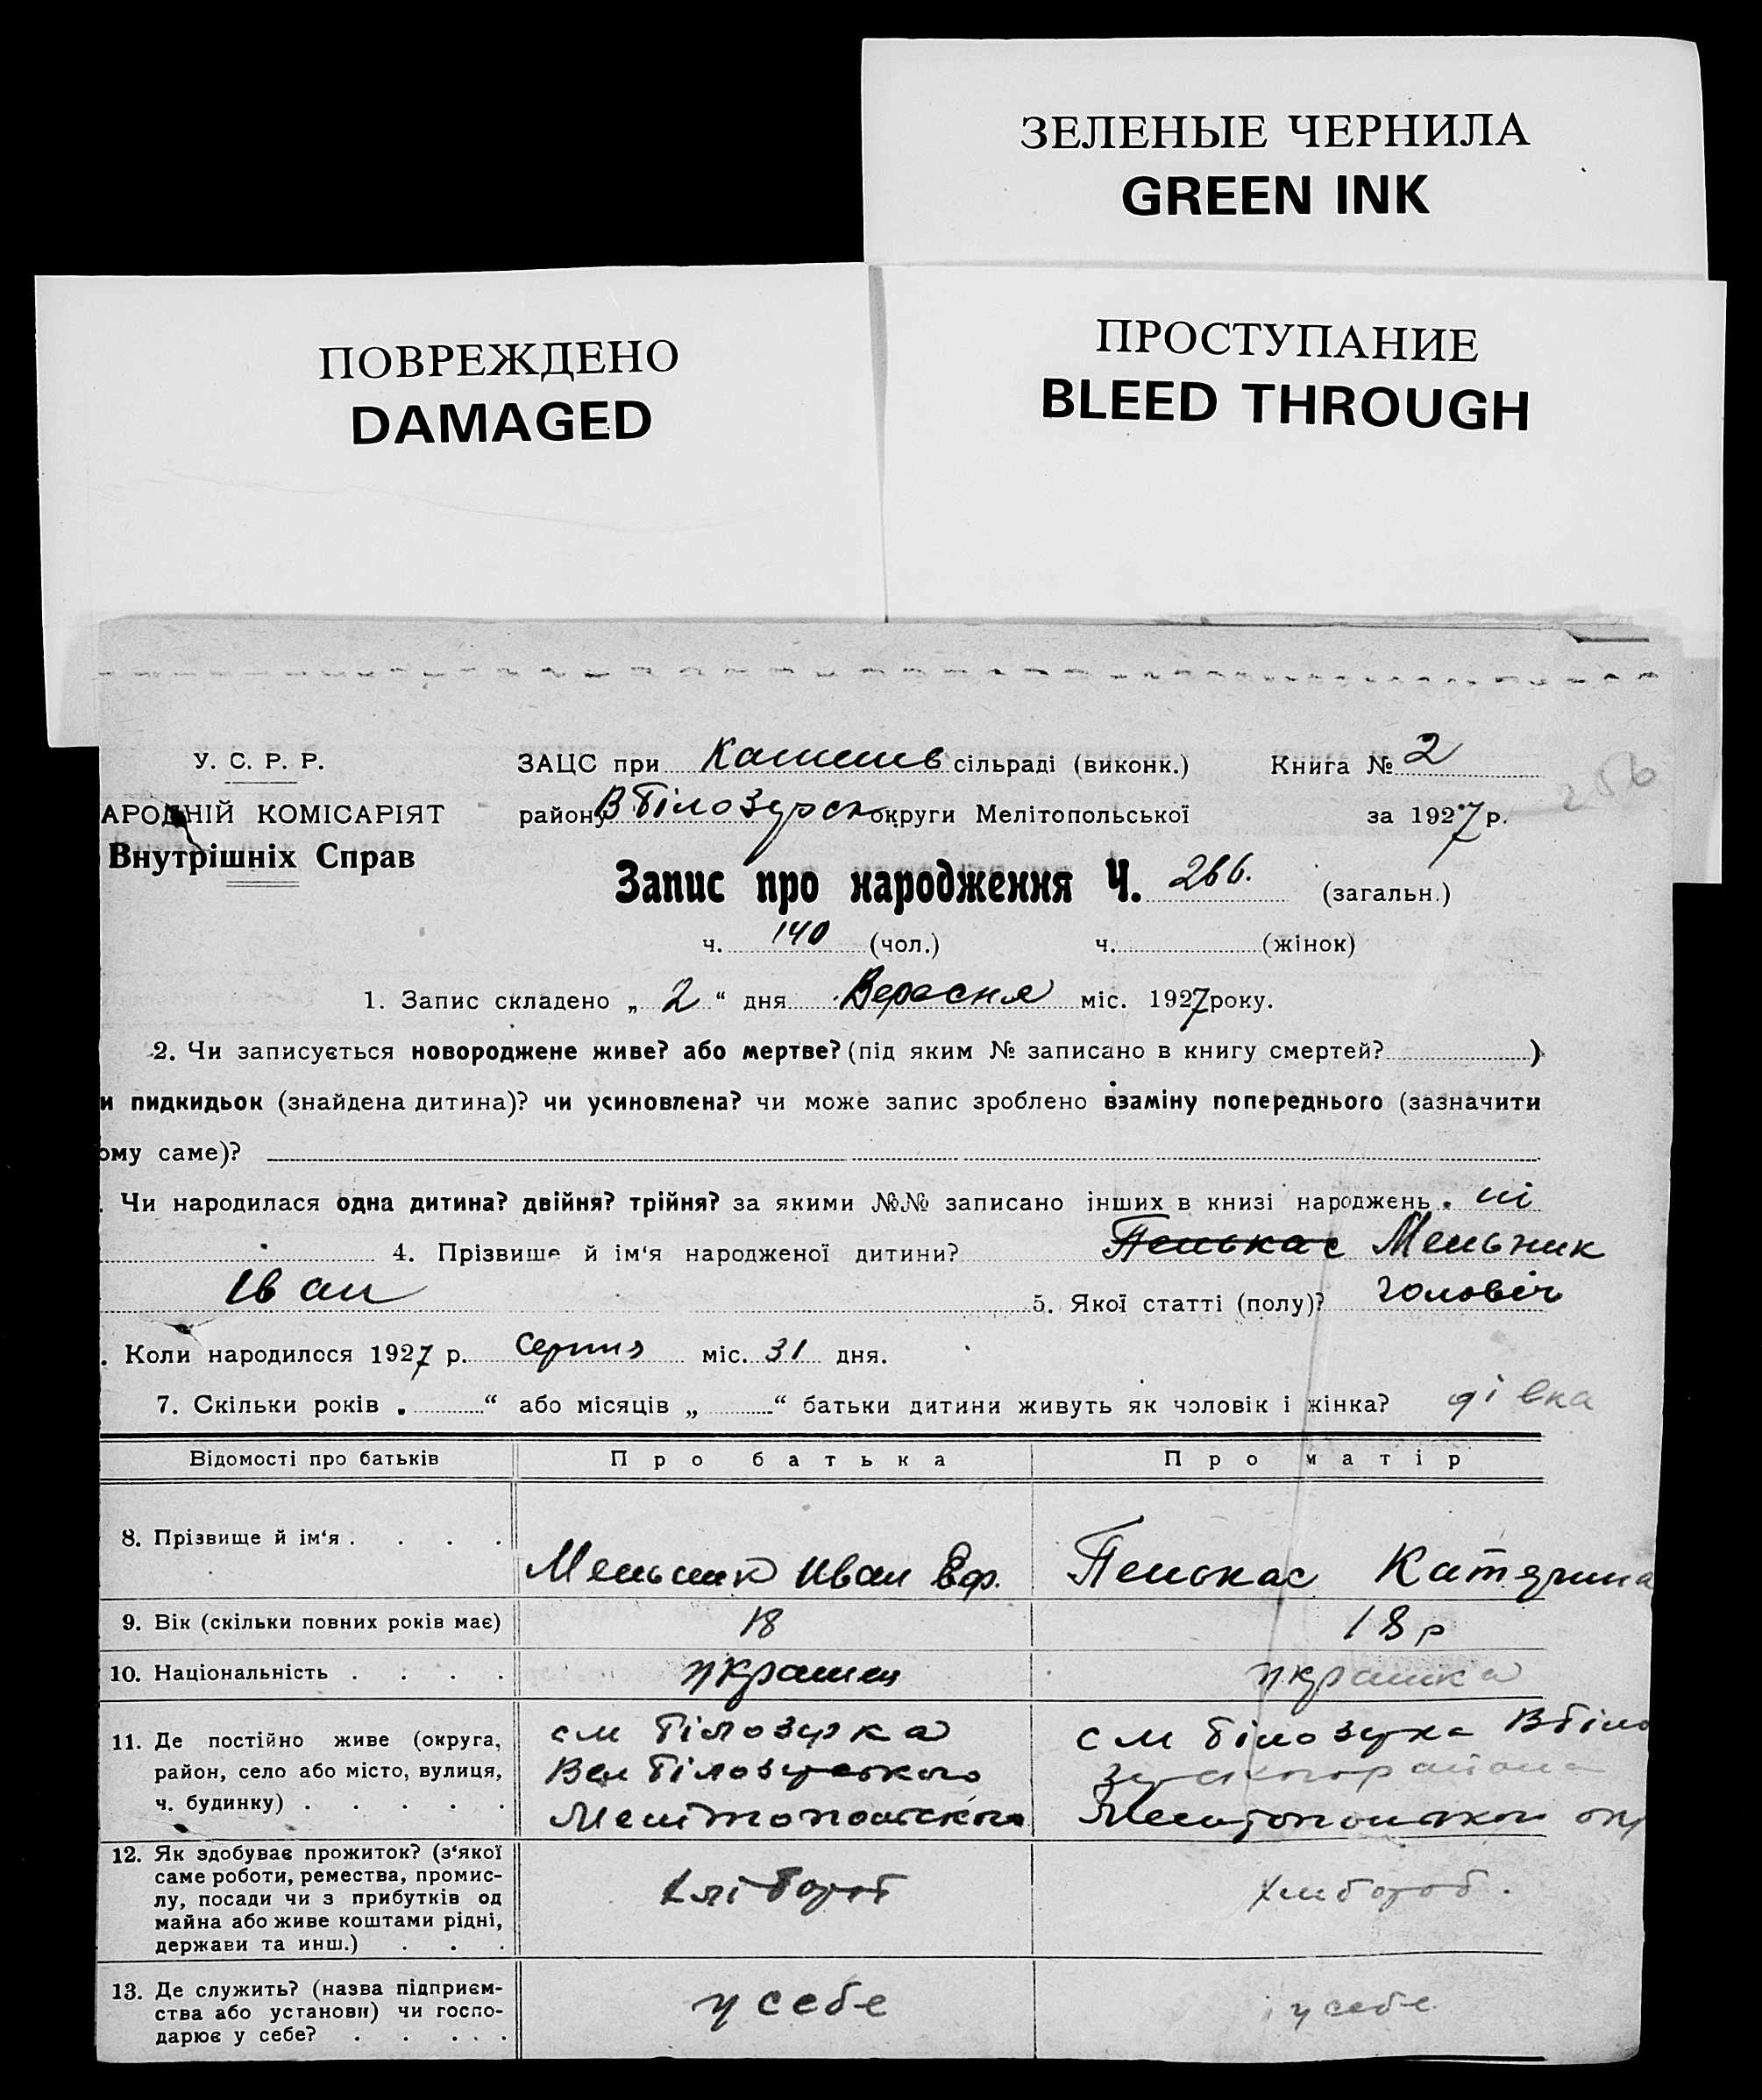 ЗЕЛЕНЫЕ ЧЕРНИЛА
GREEN INK
ПОВРЕЖДЕНО
DAMAGED
ПРОСТУПАНИЕ
BLEED THROUGH
У. С. Р. Р.
АРОДНІЙ КОМІСАРІЯТ
Внутрішніх Справ
ЗАЦС при сільраді (виконк.) Книга № 2
256
району В Білозурск округи Мелітопольської за 1927 р.
Запис про народження Ч. 266. (загальн.)
ч. 140 (чол.) ч. (жінок)
1. Запис складено „ 2 “ дня Вересня міс. 1927 року.
2. Чи записується новороджене живе? або мертве? (під яким № записано в книгу смертей? )
и пидкидьок (знайдена дитина)? чи усиновлена? чи може запис зроблено взаміну попереднього (зазначити
ому саме)?
. Чи народилася одна дитина? двійня? трійня? за якими №№ записано інших в книзі народжень. ні
4. Прізвище й ім‘я народженої дитини? Пенькас Мельник
Іван 5. Якої статті (полу)?
. Коли народилося 1927 р. Серпня міс. 31 дня.
7. Скільки років „ “ або місяців „ “ батьки дитини живуть як чоловік і жінка? дівка
Відомості про батьків Про батька Про матір
8. Прізвище й ім‘я . . . . Мельник Иван Еф. Пенькас Катерина
9. Вік (скільки повних років має) 18 18 р
10. Національність . . . .
11. Де постійно живе (округа,
район, село або місто, вулиця,
ч. будинку) . . . . .
см Білозурка
Вел Білозурського
Мелітопольського
см Білозурка В Біло
зурського района
Мелітопольської окр
12. Як здобуває прожиток? (з‘якої
саме роботи, ремества, промис-
лу, посади чи з прибутків од
майна або живе коштами рідні,
держави та инш.) . . .
хлібороб
хлибороб.
13. Де служить? (назва підприєм-
ства або установи) чи госпо-
дарює у себе? . . . . .
у себе
у себе